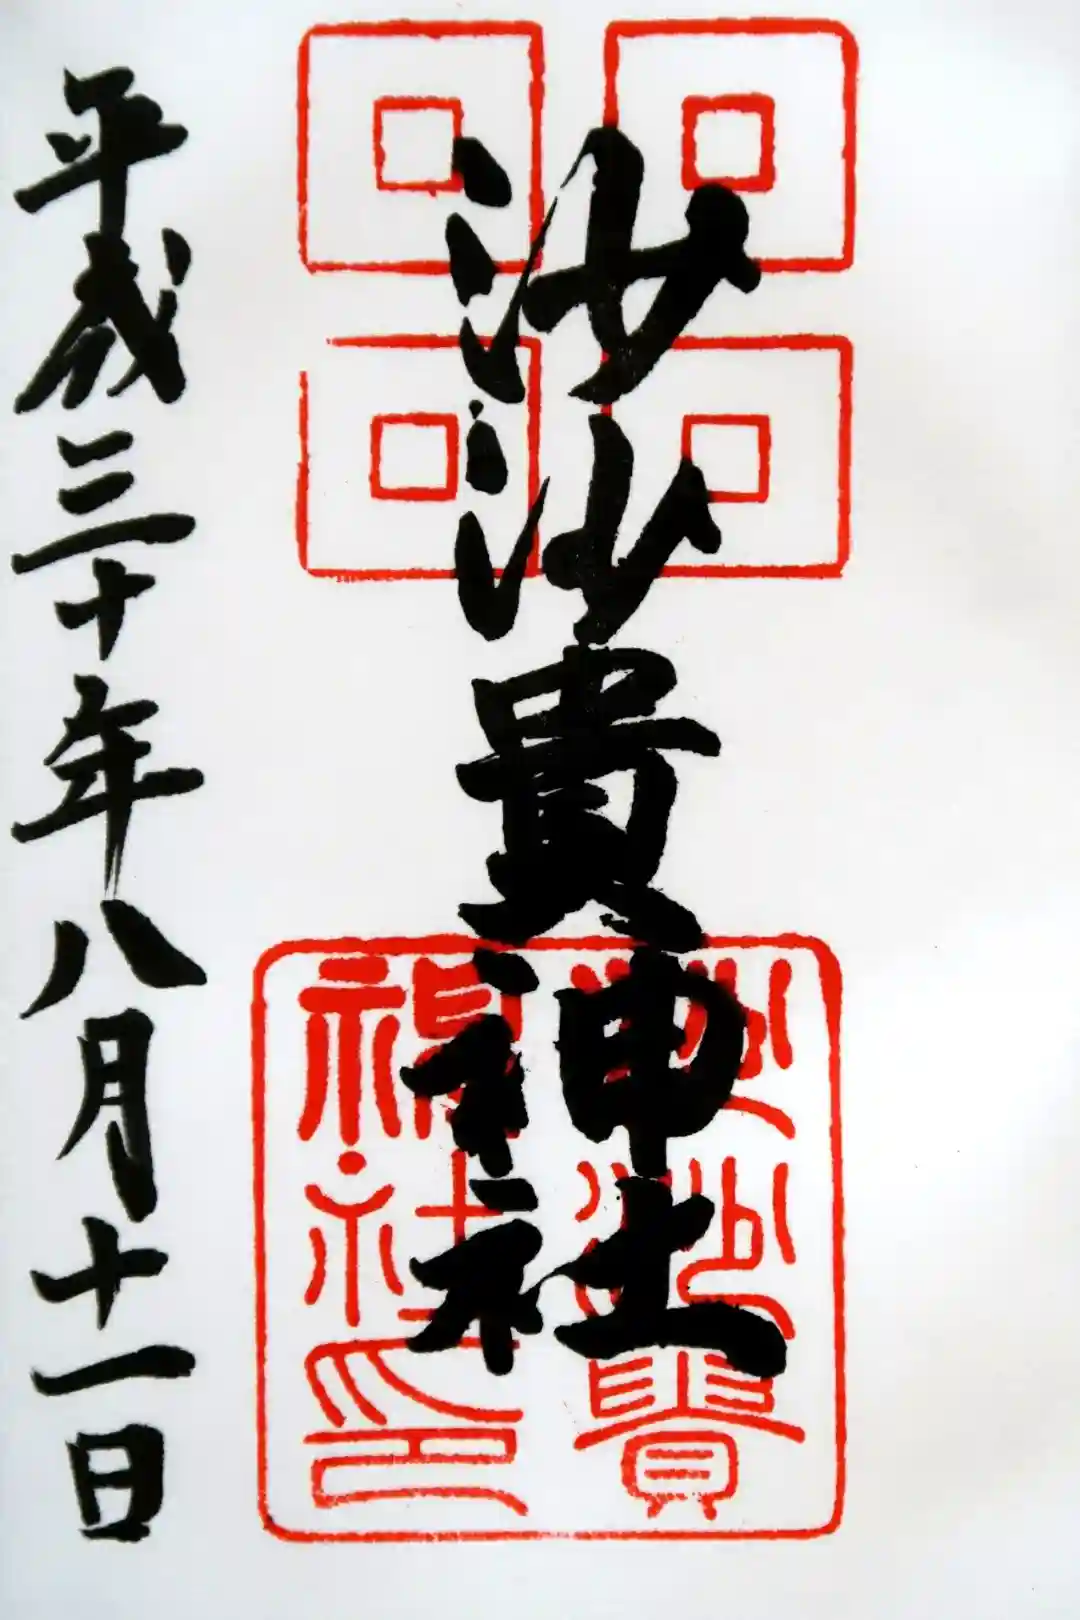 沙沙貴神社
沙沙貴
神社印
平成三十年八月十一日